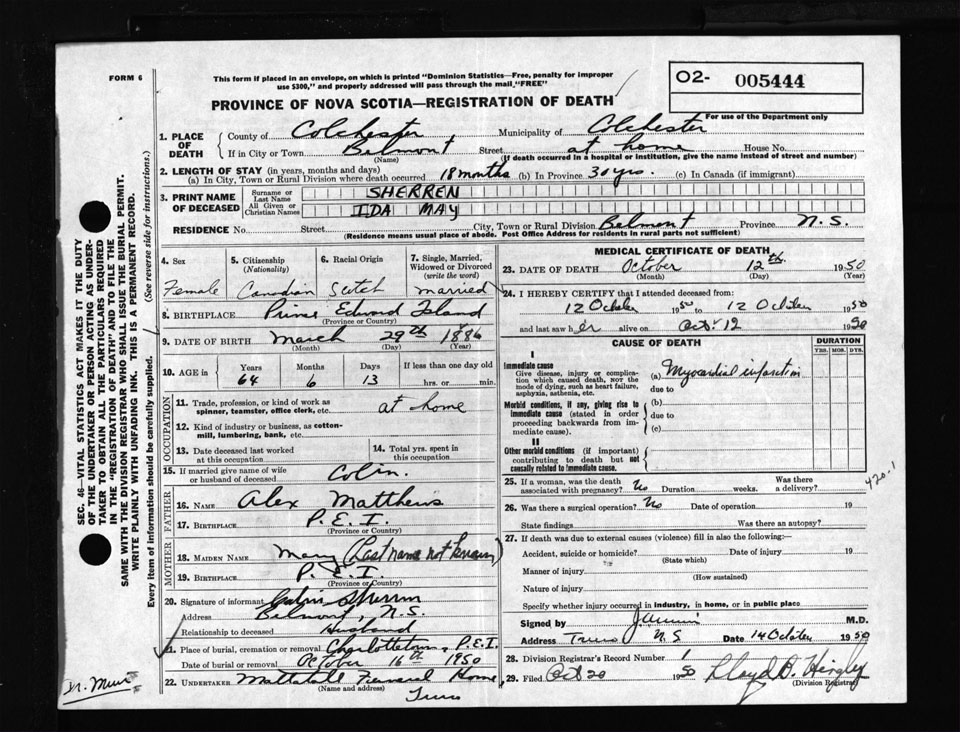 FORM 6
This form if placed in an envelope, on which is printed "Dominion Statistics—Free, penalty for improper
use $300," and properly addressed will pass through the mail "FREE"
O2- 005444
For use of the Department only
PROVINCE OF NOVA SCOTIA—REGISTRATION OF DEATH
1. PLACE OF DEATH County of Colchester Municipality of Colchester
If in City or Town Belmont Street at home House No.
(Name) (If death occurred in a hospital or institution, give the name instead of street and number)
2. LENGTH OF STAY (in years, months and days)
(a) In City, Town or Rural Division where death occurred 18 months (b) In Province 30 yrs. (c) In Canada (if immigrant)
3. PRINT NAME OF DECEASED Surname or Last Name SHERREN
All Given or Christian Names IDA MAY
RESIDENCE No. Street City, Town or Rural Division Belmont Province N.S.
(Residence means usual place of abode. Post Office Address for residents in rural parts not sufficient)
4. Sex 5. Citizenship (Nationality) 6. Racial Origin 7. Single, Married, Widowed or Divorced (write the word)
Female Canadian Scotch married
8. BIRTHPLACE Prince Edward Island
(Province or Country)
9. DATE OF BIRTH March 29th 1886
(Month) (Day) (Year)
10. AGE in Years Months Days If less than one day old
64 6 13 hrs. or min.
OCCUPATION
11. Trade, profession, or kind of work as spinner, teamster, office clerk, etc. at home
12. Kind of industry or business, as cotton-mill, lumbering, bank, etc.
13. Date deceased last worked at this occupation 14. Total yrs. spent in this occupation
15. If married give name of wife or husband of deceased Colin.
FATHER
16. NAME Alex Matthews
17. BIRTHPLACE P.E.I.
(Province or Country)
MOTHER
18. MAIDEN NAME Mary (Last name not known)
19. BIRTHPLACE P.E.I.
(Province or Country)
20. Signature of informant Colin Sherren
Address Belmont, N.S.
Relationship to deceased Husband
21. Place of burial, cremation or removal Charlottetown, P.E.I.
Date of burial or removal October 16th 1950
22. UNDERTAKER Mattatall Funeral Home
(Name and address) Truro
MEDICAL CERTIFICATE OF DEATH
23. DATE OF DEATH October 12th. 1950
(Month) (Day)
24. I HEREBY CERTIFY that I attended deceased from:
12 October 1950 to 12 October 1950
and last saw her alive on Oct 12 1950
CAUSE OF DEATH DURATION
YRS. MOS. DYS.
I
Immediate cause
Give disease, injury or complication which caused death, NOT the mode of dying, such as heart failure, asphyxia, asthenia, etc.
(a) Myocardial infarction
due to
Morbid conditions, if any, giving rise to immediate cause (stated in order proceeding backwards from immediate cause).
(b)
due to
(c)
II
Other morbid conditions (if important) contributing to death but not causally related to immediate cause.
420.1
25. If a woman, was the death associated with pregnancy? No Duration weeks. Was there a delivery?
26. Was there a surgical operation? No Date of operation 19
State findings Was there an autopsy?
27. If death was due to external causes (violence) fill in also the following:—
Accident, suicide or homicide? Date of injury 19
(State which)
Manner of injury
(How sustained)
Nature of injury
Specify whether injury occurred in industry, in home, or in public place
Signed by M.D.
Address Truro N.S Date 14 October 1950
28. Division Registrar's Record Number 1
29. Filed Oct 20 1950 Lloyd D. Hingley
(Division Registrar)
SEC. 46—VITAL STATISTICS ACT MAKES IT THE DUTY
OF THE UNDERTAKER OR PERSON ACTING AS UNDER-
TAKER TO OBTAIN ALL THE PARTICULARS REQUIRED
IN THE "REGISTRATION OF DEATH" AND TO FILE THE
SAME WITH THE DIVISION REGISTRAR WHO SHALL ISSUE THE BURIAL PERMIT.
WRITE PLAINLY WITH UNFADING INK. THIS IS A PERMANENT RECORD.
Every item of information should be carefully supplied. (See reverse side for instructions.)
Dr. Muir